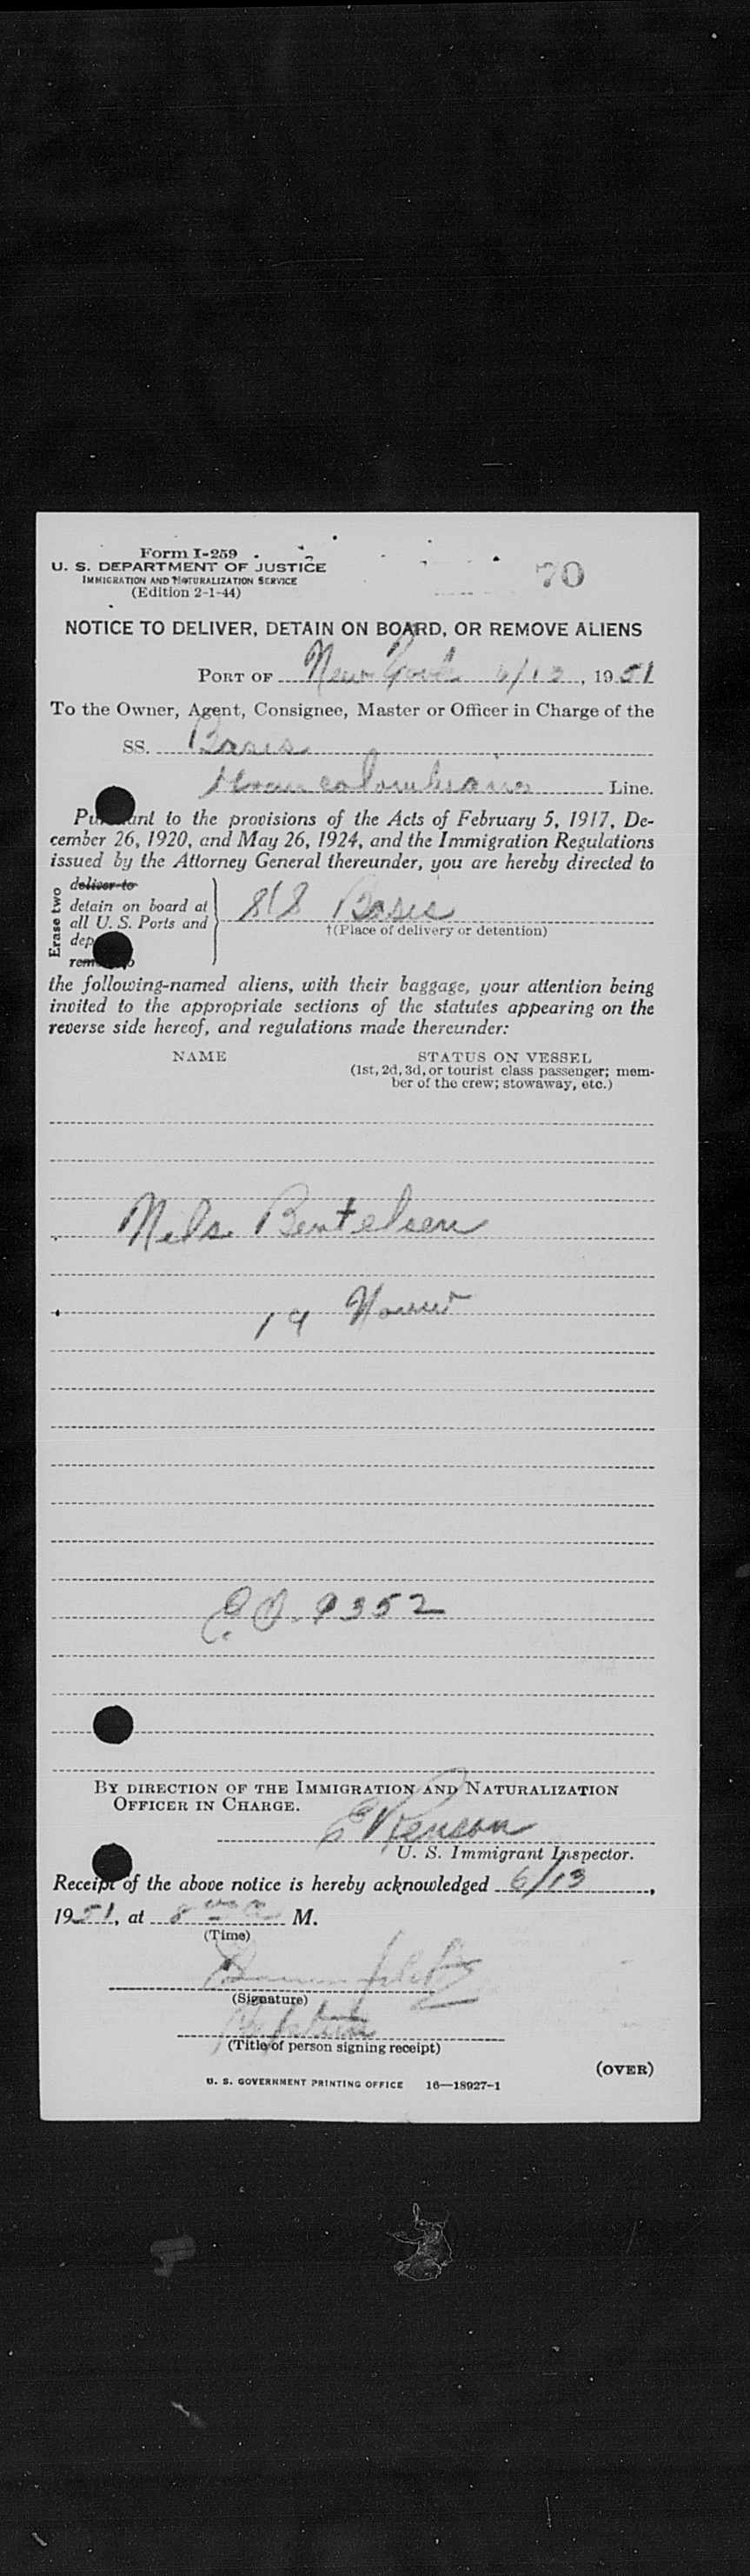 Form I-259
U. S. DEPARTMENT OF JUSTICE
IMMIGRATION AND NATURALIZATION SERVICE
(Edition 2-1-44)
70
NOTICE TO DELIVER, DETAIN ON BOARD, OR REMOVE ALIENS
PORT OF New York 6/13, 1951
To the Owner, Agent, Consignee, Master or Officer in Charge of the
SS. Basis
Line.
Pursuant to the provisions of the Acts of February 5, 1917, De-
cember 26, 1920, and May 26, 1924, and the Immigration Regulations
issued by the Attorney General thereunder, you are hereby directed to
Erase two
deliver to
detain on board at
all U. S. Ports and
dep
remove to
S/S Basis
†(Place of delivery or detention)
the following-named aliens, with their baggage, your attention being
invited to the appropriate sections of the statutes appearing on the
reverse side hereof, and regulations made thereunder:
NAME
STATUS ON VESSEL
(1st, 2d, 3d, or tourist class passenger; mem-
ber of the crew; stowaway, etc.)
Nils Bentelsen
19
E.O. 9352
BY DIRECTION OF THE IMMIGRATION AND NATURALIZATION
OFFICER IN CHARGE.
U. S. Immigrant Inspector.
Receipt of the above notice is hereby acknowledged 6/13,
1951, at 8 M.
(Time)
(Signature)
(Title of person signing receipt)
(OVER)
U. S. GOVERNMENT PRINTING OFFICE 16—18927-1